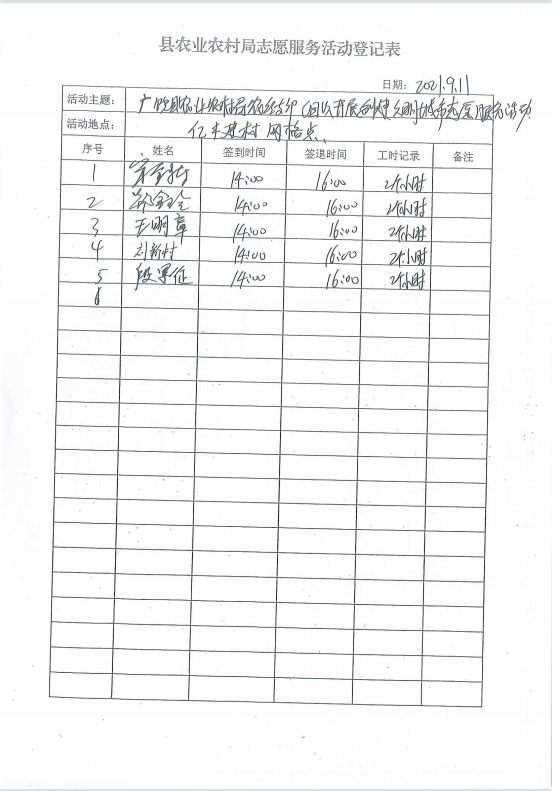 县农业农村局志愿服务活动登记表
日期：2021.9.11
活动主题：广 县农业农村局 开展创建文明城市志愿服务活动
活动地点：亿丰建材 网格点
序号 姓名 签到时间 签退时间 工时记录 备注
1 14:00 16:00 2个小时
2 14:00 16:00 2个小时
3 王明章 14:00 16:00 2个小时
4 刘新村 14:00 16:00 2个小时
5 段军征 14:00 16:00 2个小时
6